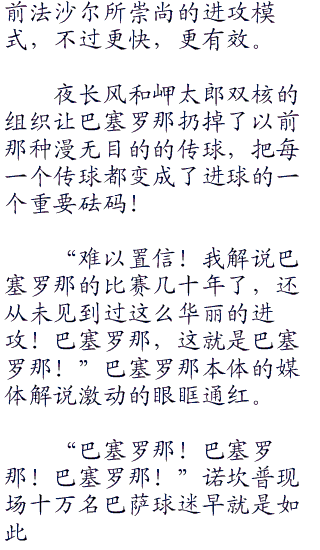 前法沙尔所崇尚的进攻模
式，不过更快，更有效。
夜长风和岬太郎双核的
组织让巴塞罗那扔掉了以前
那种漫无目的的传球，把每
一个传球都变成了进球的一
个重要砝码！
“难以置信！我解说巴
塞罗那的比赛几十年了，还
从未见到过这么华丽的进
攻！巴塞罗那，这就是巴塞
罗那！”巴塞罗那本体的媒
体解说激动的眼眶通红。
“巴塞罗那！巴塞罗
那！巴塞罗那！”诺坎普现
场十万名巴萨球迷早就是如
此